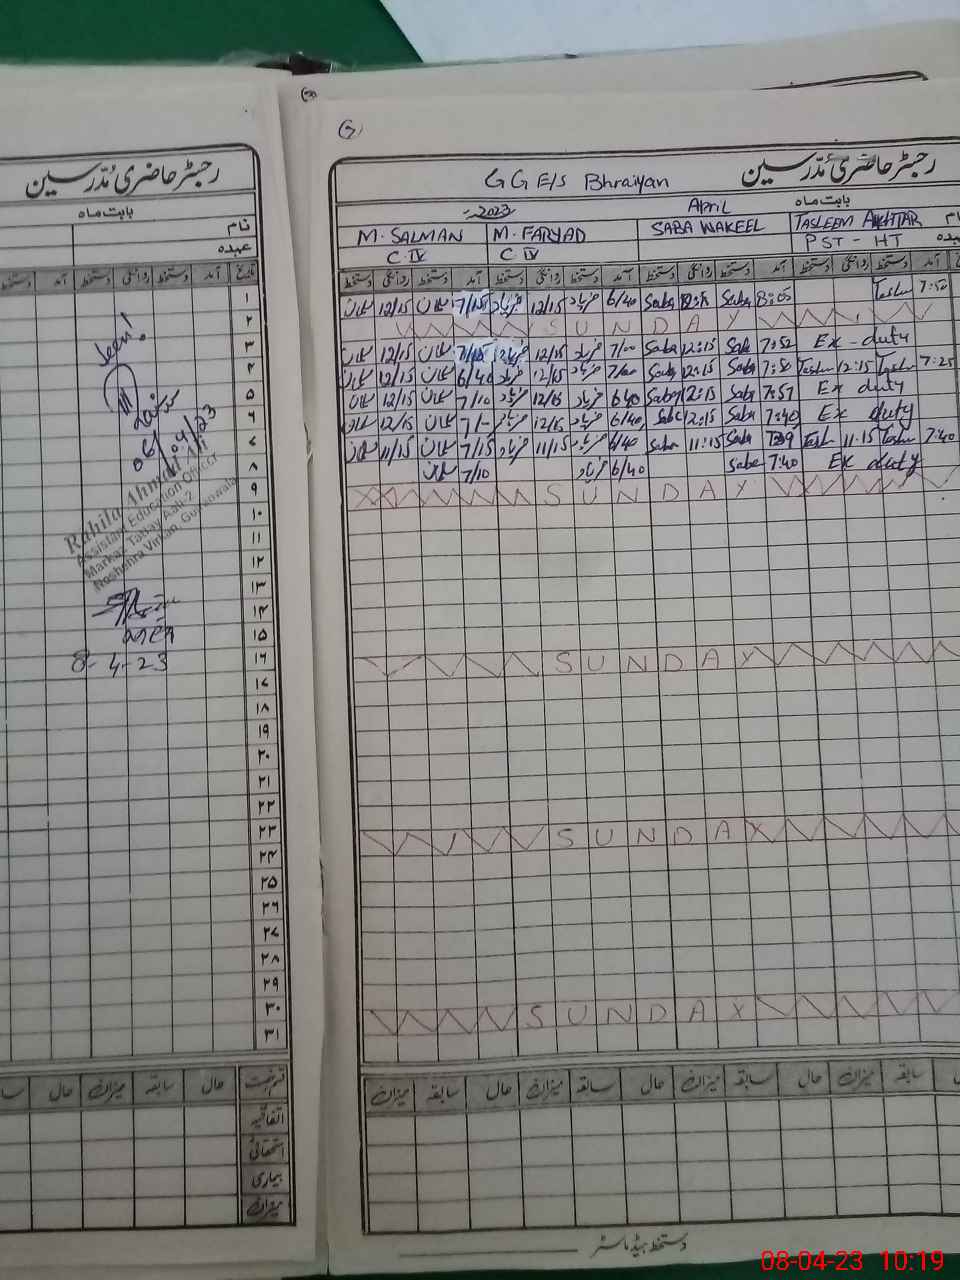 رجسٹر حاضری مدرسین
بابت ماہ
نام
عہدہ
تاریخ آمد دستخط روانگی دستخط آمد دستخط
۱
۲
۳
۴
۵
۶
۷
۸
۹
۱۰
۱۱
۱۲
۱۳
۱۴
۱۵
۱۶
۱۷
۱۸
۱۹
۲۰
۲۱
۲۲
۲۳
۲۴
۲۵
۲۶
۲۷
۲۸
۲۹
۳۰
۳۱
Seen!
06/04/23
Rahila Ahmad Ali
Assistant Education Officer
Markaz Tatlay Aali-2
Noshehra Virkan, Gujranwala
8-4-23
قسم رخصت حال سابقہ میزان حال
اتفاقیہ
استحقاقی
بیماری
میزان
G G E/S Bhraiyan رجسٹر حاضری مدرسین
2023 April بابت ماہ
M. SALMAN M. FARYAD SABA WAKEEL TASLEEM AKHTAR نام
C IV C IV PST - HT عہدہ
دستخط روانگی دستخط آمد دستخط روانگی دستخط آمد دستخط روانگی دستخط آمد دستخط روانگی دستخط آمد
سلمان 12/15 سلمان 7/15 فریاد 12/15 فریاد 6/40 Saba 12:15 Saba 8:05 7:50
SUNDAY
سلمان 12/15 سلمان 7/15 فریاد 12/15 فریاد 7/00 Saba 12:15 Saba 7:52 Ex - duty
سلمان 12/15 سلمان 6/40 فریاد 12/15 فریاد 7/00 Saba 12:15 Saba 7:50 12:15 7:25
سلمان 12/15 سلمان 7/10 فریاد 12/15 فریاد 6/40 Saba 12:15 Saba 7:57 Ex duty
سلمان 12/15 سلمان 7/- فریاد 12/15 فریاد 6/40 Saba 12:15 Saba 7:40 Ex duty
سلمان 11/15 سلمان 7/15 فریاد 11/15 فریاد 6/40 Saba 11:15 Saba 11:15 7:40
سلمان 7/10 فریاد 6/40 Saba 7:40 Ex duty
SUNDAY
SUNDAY
SUNDAY
SUNDAY
میزان سابقہ حال میزان سابقہ حال میزان سابقہ حال میزان سابقہ
دستخط ہیڈ ماسٹر
08-04-23 10:19